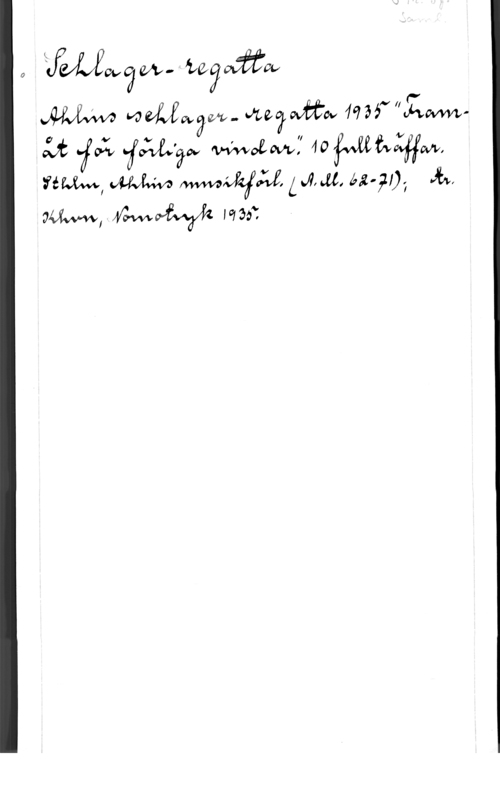 Schlager-regatta
Ahlins schlager-regatta 1935 "Fram-
åt för förliga vindar". 10 fullträffar.
Sthlm, Ahlins musikförl. (A.M. 62-71);
Khvn, Nornotryk 1935.